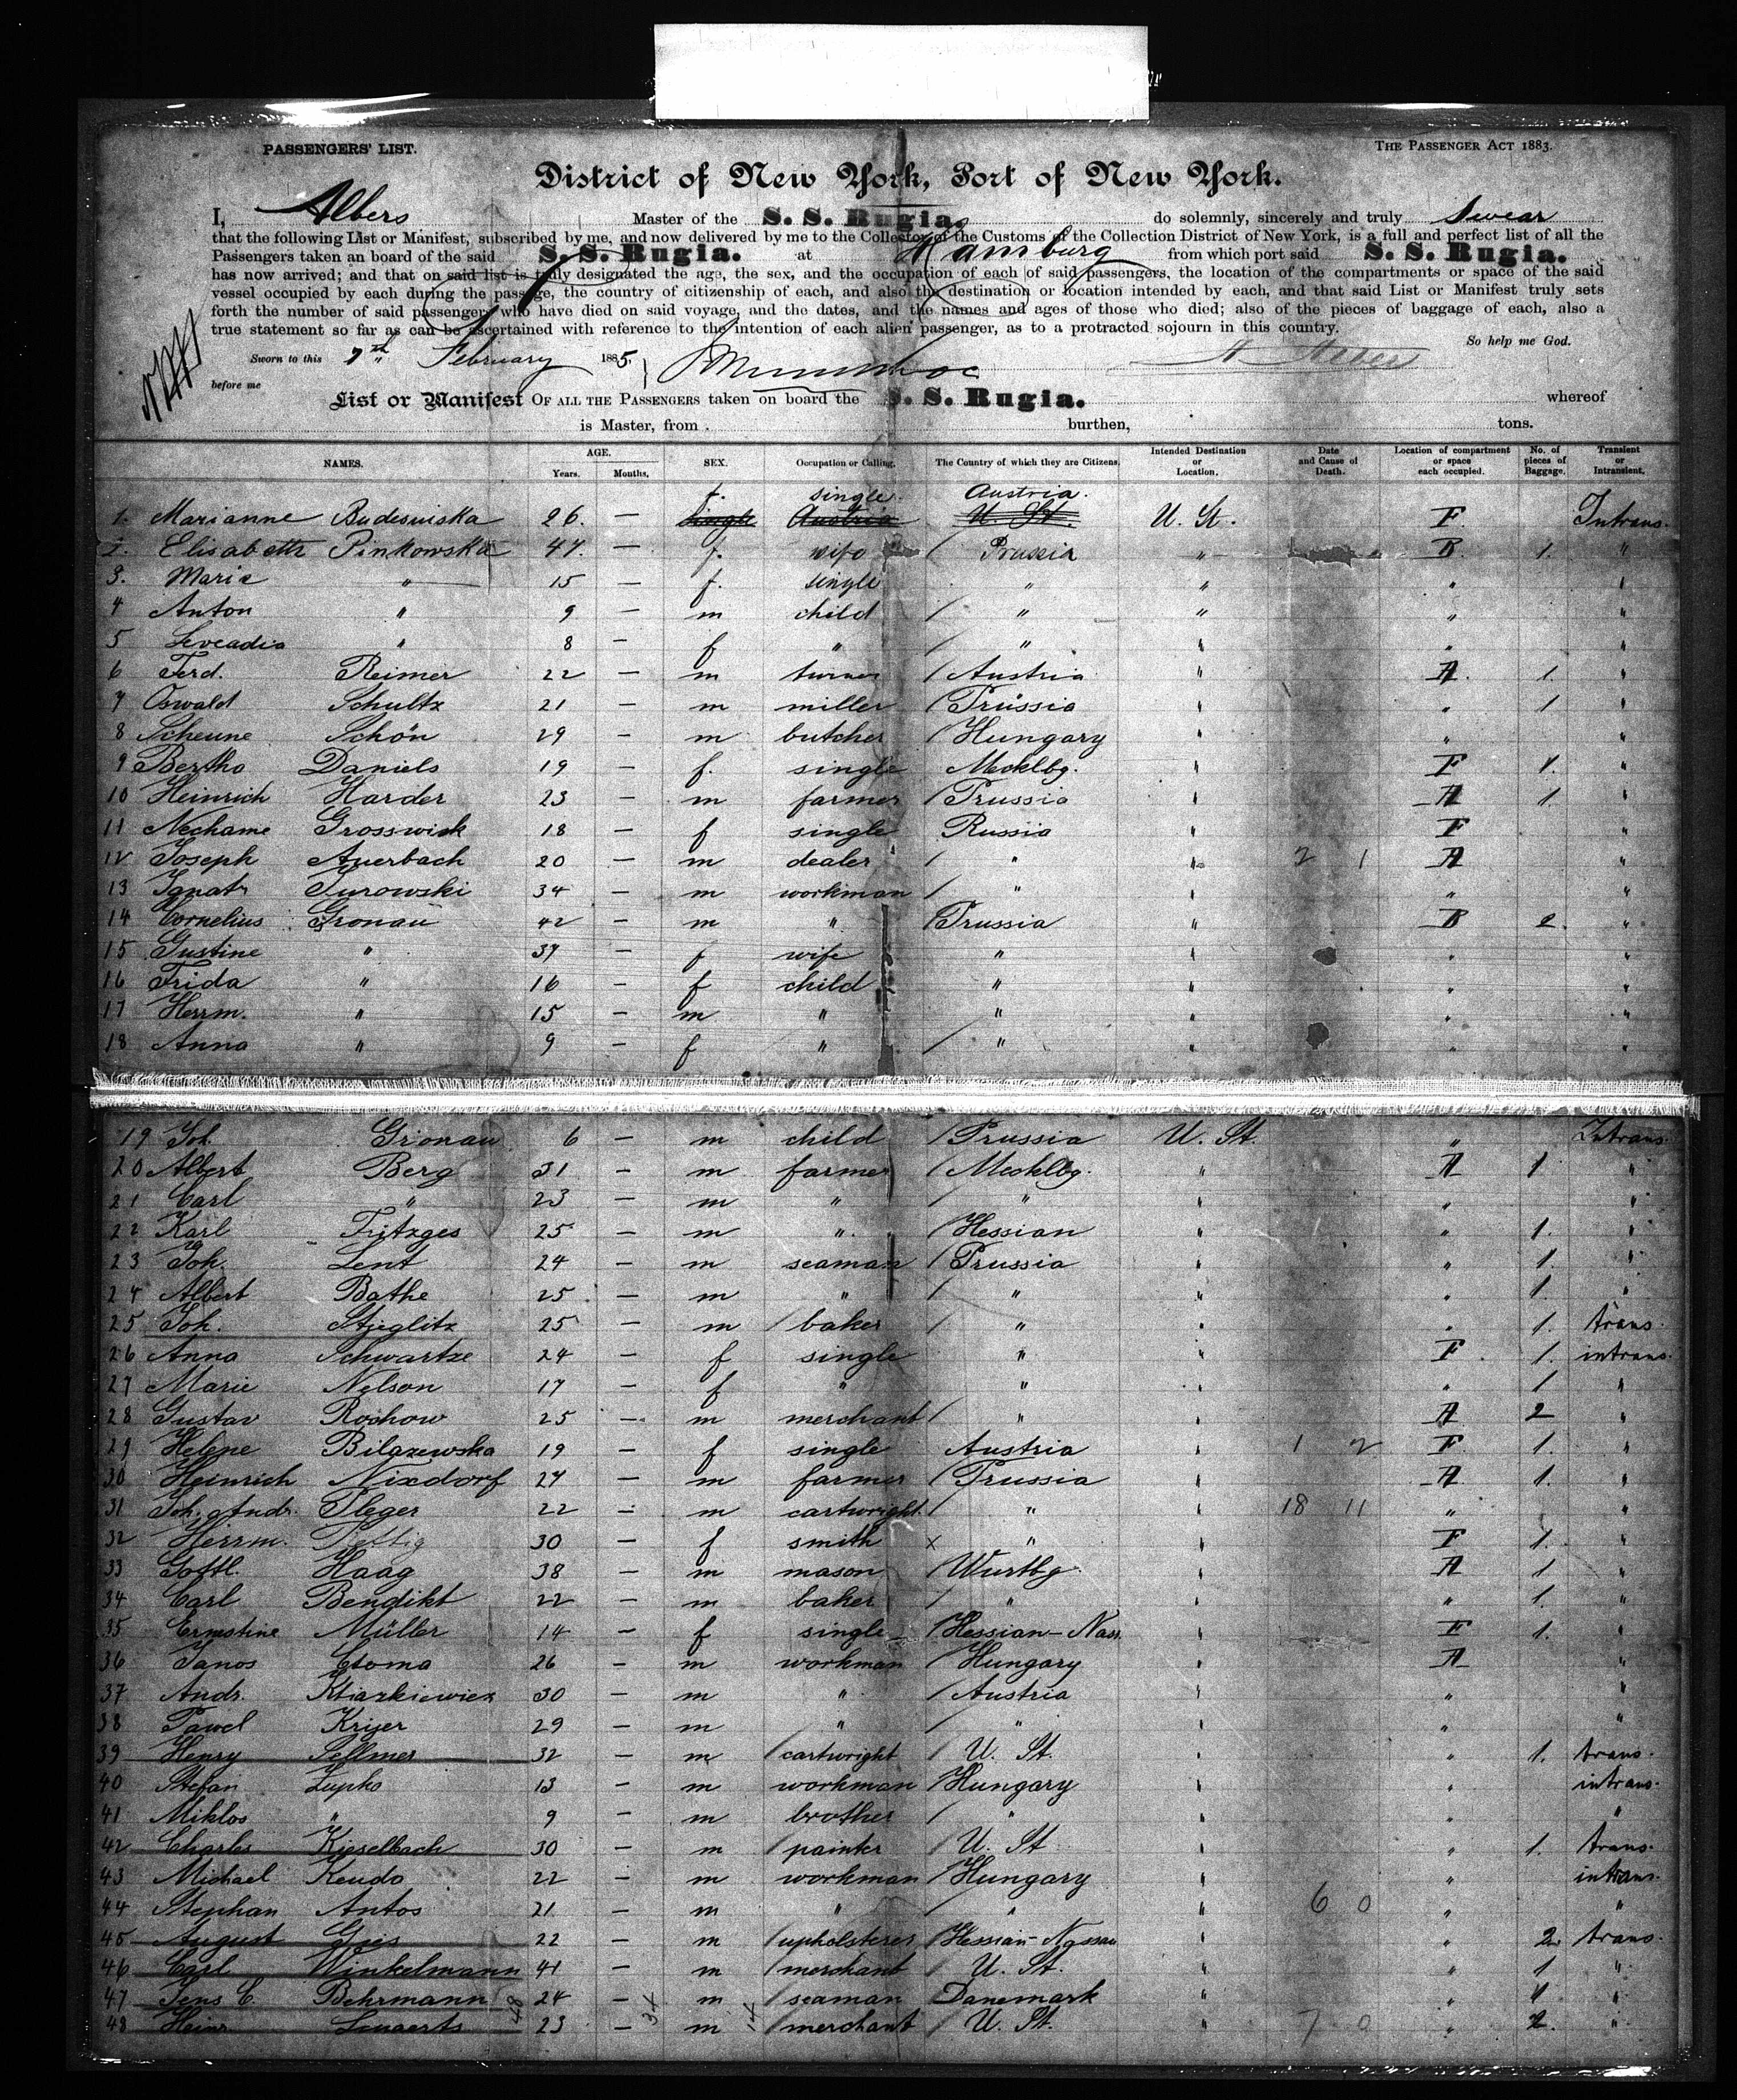 PASSENGERS' LIST. THE PASSENGER ACT 1883.
District of New York, Port of New York.
I, Albers Master of the S. S. Rugia. do solemnly, sincerely and truly swear
that the following List or Manifest, subscribed by me, and now delivered by me to the Collector of the Customs of the Collection District of New York, is a full and perfect list of all the
Passengers taken an board of the said S. S. Rugia. at Hamburg from which port said S. S. Rugia.
has now arrived; and that on said list is truly designated the age, the sex, and the occupation of each of said passengers, the location of the compartments or space of the said
vessel occupied by each during the passage, the country of citizenship of each, and also the destination or location intended by each, and that said List or Manifest truly sets
forth the number of said passengers who have died on said voyage, and the dates, and the names and ages of those who died; also of the pieces of baggage of each, also a
true statement so far as can be ascertained with reference to the intention of each alien passenger, as to a protracted sojourn in this country.
So help me God.
Sworn to this 7th February 1885 A Albers
before me
List or Manifest OF ALL THE PASSENGERS taken on board the S. S. Rugia. whereof
is Master, from burthen, tons.
NAMES. AGE. Years. Months. SEX. Occupation or Calling. The Country of which they are Citizens. Intended Destination or Location. Date and Cause of Death. Location of compartment or space each occupied. No. of pieces of Baggage. Transient or Intransient.
f. single. Austria.
1. Marianne Budesinska 26. — single Austria U. St. U. St. F. Intrans.
2. Elisabeth Pinkowska 47. — f. wife / Prussia " B. 1. "
3. Maria " 15 — f. single " " " "
4 Anton " 9 — m child / " " " "
5 Leocadia " 8 — f " / " " " "
6 Ferd. Reimer 22 — m turner / Austria " A. 1. "
7 Oswald Schultz 21 — m miller / Prussia " " 1 "
8 Scheune Schön 29 — m butcher / Hungary " " "
9 Bertha Daniels 19 — f. single Mecklbg. " F 1. "
10 Heinrich Harder 23 — m farmer / Prussia " A 1. "
11 Nechame Grosswick 18 — f single Russia " F "
12 Joseph Auerbach 20 — m dealer / " " 2 1 A "
13 Ignatz Turowski 34 — m workman / " " " "
14 Cornelius Gronau 42 — m " Prussia " B 2. "
15 Justine " 37 — f wife " " " "
16 Frida " 16 — f child " " " "
17 Herrm. " 15 — m " " " " "
18 Anna " 9 — f " / " " " "
19 Joh. Gronau 6 — m child / Prussia U. St. " Intrans.
20 Albert Berg 31 — m farmer / Mecklbg. " A 1 "
21 Carl " 23 — m " / " " " "
22 Karl Fritzges 25 — m " / Hessian " " 1. "
23 Joh. Lent 24 — m seaman / Prussia " " 1. "
24 Albert Bathe 25 — m " / " " " 1. "
25 Joh. Stieglitz 25 — m / baker / " " " 1. trans.
26 Anna Schwartze 24 — f single " " F. 1. intrans.
27 Marie Nelson 17 — f " " " " 1 "
28 Gustav Rochow 25 — m merchant / " " A 2 "
29 Helene Bilazewska 19 — f single Austria " 1 2 F 1. "
30 Heinrich Nixdorf 27 — m farmer / Prussia " A 1. "
31 Joh. Andr. Pleger 22 — m cartwright / " " 18 11 " "
32 Herrm. 30 — f smith x " " F 1. "
33 Gottl. Haag 38 — m mason / Wurtbg. " A 1 "
34 Carl Bendikt 22 — m baker / " " " 1. "
35 Ernestine Müller 14 — f single / Hessian-Nass. " F 1. "
36 Janos Csoma 26 — m workman / Hungary " A "
37 Andr. 30 — m " / Austria " " "
38 Pawel Krijer 29 — m " / " " " "
39 Henry Sellmer 32 — m / cartwright / U. St. " " 1. trans.
40 Stefan Zupko 13 — m workman / Hungary " " intrans.
41 Miklos " 9 — m brother / " " " "
42 Charles Kieselbach 30 — m / painter / U. St " " 1. trans.
43 Michael Kendo 22 — m workman / Hungary " " intrans.
44 Stephan Antos 21 — m " / " " 6 0 " "
45 August Gies 22 — m / upholsterer / Hessian-Nassau " " 2. trans.
46 Carl Winkelmann 41 — m / merchant / U. St. " " 1 "
47 Jens C. Behrmann 24 — m / seaman Danemark " " 1 "
48 Heinr. Lenaerts 23 — m / merchant / U. St. " 7 0 " 2. "
48 34 14